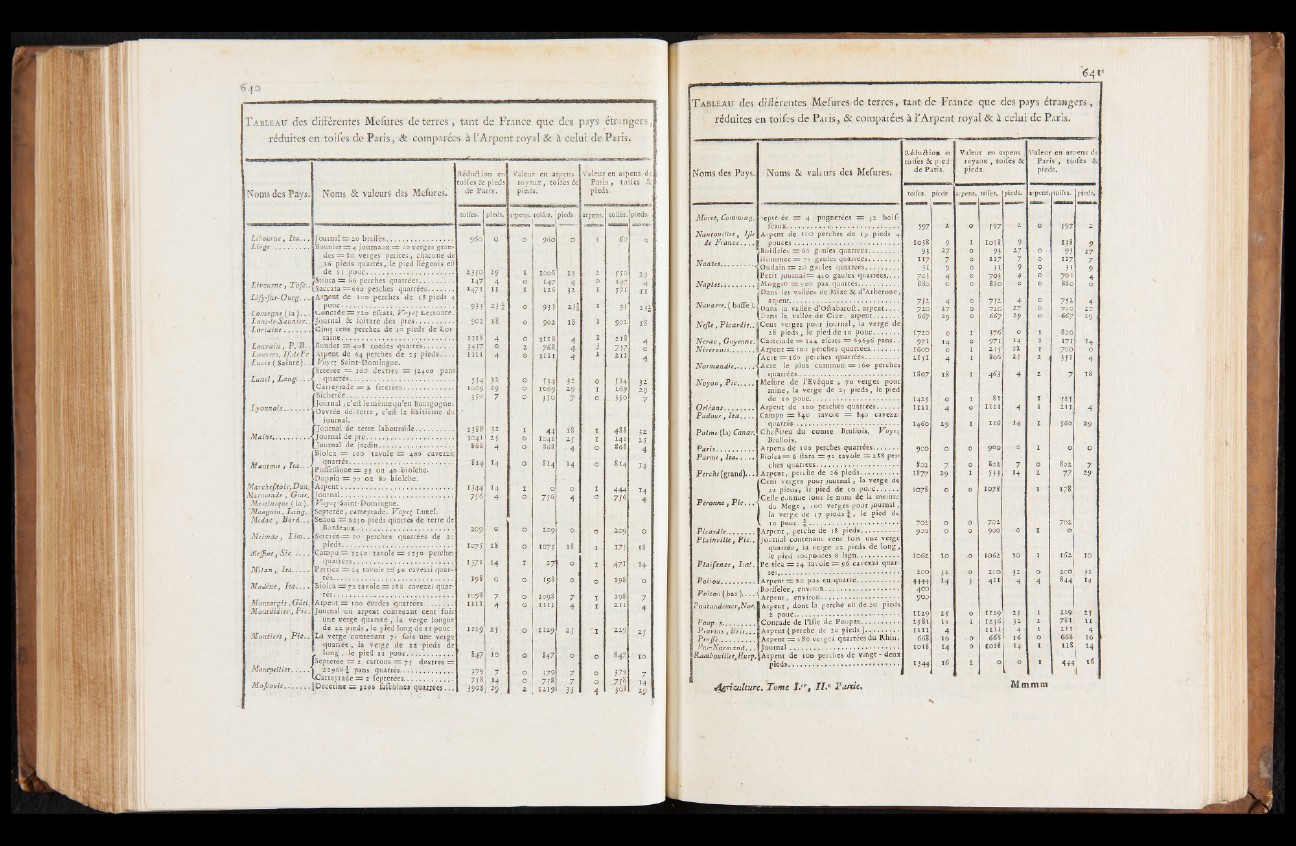 640
TABLEAU des différentes Mesures de terres, tant de France que des pays étrangers,
réduites en toises de Paris, & comparées à l'Arpent royal & à celui de Paris.
Noms des Pays. Noms & valeurs des Mesures. Réduction en toises & pieds de Paris. Valeur en arpens royaux, toises & pieds. Valeur en arpens de Paris, toises & pieds.
toises. pieds. arpens. toises. pieds. arpens. toises. pieds.
Libourne, Ita... Journal = 20 brasses 960 0 0 960 0 1 60 0
Liège Bounier = 4 journaux = 20 verges gran-
des = 80 verges petites, chacune de
16 pieds quarrés, le pied liégeois est
de 11 pouc. 2350 29 1 1006 13 2 550 29
Livourne, Tosc. Stiuca = 66 perches quarrées 147 4 0 147 4 0 147 4
Saccata = 660 perches quarrées 1471 11 1 126 32 1 571 11
Lisy-sur-Ourq. Arpent de 100 perches de 18 pieds 4
pouc. 933 0 933 1 33
Lomagne (la). Concade = 720 escats, Voyez Lectoure.
Lons-le-Saunier. Journal & soiture des prés 902 18 0 902 18 1 902 18
Lorraine Cinq cens perches de 10 pieds de Lor-
raine 1118 4 0 1118 4 1 218 4
Louvain, P. B. Bunder = 408 cordes quarrés 3457 0 2 768 4 3 757 0
Louvres, Is.de Fr. Arpent de 64 perches de 25 pieds 1111 4 0 1111 4 1 211 4
Lucie (Sainte). Voyez Saint-Domingue.
Lunel, Lang. Seterée = 100 dextres = 32400 pans
quarrés 534 32 0 534 32 0 534 32
Carteyrade = 2 seterées 1069 29 0 1069 29 1 169 29
Lyonnois Bicherée 350 7 0 350 7 0 350 7
Journal; c'est le même qu'en Bourgogne.
Ouvrée de terre, c'est le huitième du
journal.
Maine Journal de terre labourable 1388 32 1 44 18 1 488 32
Journal de pré 1041 25 0 1041 25 1 141 25
Journal de jardin 868 4 0 868 4 0 868 4
Mantoue, Ita. Biolca = 100 tavole = 400 cavezzi
quarrés 814 14 0 814 14 0 814 14
Possessione = 35 ou 40 biolche.
Doppia = 70 ou 80 biolche.
Marchesnoir, Dun. Arpent 1344 14 1 0 0 1 444 14
Marmande, Guie. Journal 756 4 0 756 4 0 756 4
Martinique (la). Voyez Saint-Domingue.
Mauguio, Lang. Septerée, carteyrade. Voyez Lunel.
Médoc, Bord. Sedon = 6250 pieds quarrés de terre de
Bordeaux 209 0 0 209 0 0 209 0
Meinde, Lim. Seterée = 10 perches quarrées de 21
pieds 1075 18 0 1075 18 1 175 18
Messine, Sic. Campo = 1250 tavole = 1250 perches
quarrées 1371 14 1 27 0 1 471 14
Milan, Ita. Pertica = 24 tavole = 96 cavezzi quar-
rés 198 0 0 198 0 0 198 0
Modène, Ita. Biolca = 72 tavole = 288 cavezzi quar-
rés 1098 7 0 1098 7 1 198 7
Montargis, Gâti. Arpent = 100 cordes quarrées 1111 4 0 1111 4 1 211 4
Montdidier, Pic. Journal ou arpent contenant cent fois
une verge quarrée, la verge longue
de 22 pieds, le pied long de 11 pouc. 1129 25 0 1129 25 1 229 25
Montiers, Pic. La verge contenant 75 fois une verge
quarrée, la verge de 22 pieds de
long, le pied 11 pouc. 847 10 0 847 0 0 847 10
Montpellier Septerée = 2 cartons = 75 dextres =
22968 pans quarrés 379 7 0 379 7 0 379 7
Carteyrade = 2 septerées 758 14 0 758 7 0 758 14
Moscovie Decetine = 3200 sasschines quarrées 3908 29 2 1219 33 4 308 29
641
TABLEAU des différentes Mesures de terres, tant de France que des pays étrangers,
réduites en toises de Paris, & comparées à l'Arpent royal & à celui de Paris.
Noms des Pays. Noms & valeurs des Mesures. Réduction en toises & pieds de Paris. Valeur en arpens royaux, toises & pieds. Valeur en arpens de Paris, toises & pieds.
toises. pieds. arpens. toises. pieds. arpens. toises. pieds.
Muret, Comming. Septerée = 4 pognerées = 32 bois-
seaux 597 2 0 597 2 0 597 2
Nanteuillet, Isle de France Arpent de 100 perches de 19 pieds 4
pouces 1038 9 1 1038 9 138 9
Nantes Boisselée = 60 gaules quarrées 93 27 0 93 27 0 93 27
Hommée = 75 gaules quarrées 117 7 0 117 7 0 117 7
Oudain = 20 gaules quarrées 31 9 0 31 9 0 31 9
Petit journal = 450 gaules quarrées 703 4 0 703 4 0 703 4
Naples Moggio = 900 pas quarrés 880 0 0 880 0 0 880 0
Navarre (basse). Dans les vallées de Mixe & d'Arberone,
arpent 752 4 0 752 4 0 752 4
Dans la vallée d'Ostabaroit, arpent 720 27 0 720 27 0 720 27
Dans la vallée de Cize, arpent 667 29 0 667 29 0 667 29
Nesle, Picardie. Cent verges pour journal, la verge de
28 pieds, le pied de 10 pouc. 1720 0 1 376 0 1 820
Nerac, Guyenne. Carteirade = 144 escats = 69696 pans 971 14 0 971 14 1 171 14
Nivernois Arpent = 100 perches quarrées 1600 0 1 255 22 1 700 0
Normandie Acre = 160 perches quarrées 2151 4 1 806 25 2 351 4
Acre le plus commun = 160 perches
quarrées 1807 18 1 463 4 2 7 18
Noyon, Pic. Mesure de l'Evêque, 70 verges pour
mine, la verge de 25 pieds, le pied
de 10 pouc. 1425 0 1 81 1 525
Orléans Arpent de 100 perches quarrées 1111 4 0 1111 4 1 211 4
Padoue, Ita. Campo = 840 tavole = 840 cavezzi
quarrés 1460 29 1 116 14 1 560 29
Palme (la) Canar. Chef-lieu du comté Brullois, Voyez
Brullois.
Paris Arpent de 100 perches quarrées 900 0 0 900 0 1 0 0
Parme, Ita. Biolca = 6 stara = 72 tavole = 288 per-
ches quarrées 802 7 0 802 7 0 802 7
Perche (grand). Arpent, perche de 26 pieds 1877 29 1 533 14 2 77 29
Peronne, Pic. Cent verges pour journal, la verge de
22 pieds, le pied de 10 pouc. 1078 0 0 1078 1 178
Celle connue sous le nom de la mesure
du Mege, 100 verges pour journal,
la verge de 17 pieds, le pied de
10 pouc. 702 0 0 702 702
Picardie Arpent, perche de 18 pieds 900 0 0 900 0 1 0
Plainville, Pic. Journal contenant cent fois une verge
quarrée, la verge 22 pieds de long,
le pied 10 pouces 8 lign. 1062 10 0 1062 10 1 162 10
Plaisance, Ital. Pertica = 24 tavole = 96 cavezzi quar-
rés 200 32 0 200 32 0 200 32
Poitou Arpent = 80 pas en quarré 4444 14 3 411 4 4 844 14
Poitou (bas). Boisselée, environ 400
Arpent, environ 900
Pontaudemer, Nor. Arpent, dont la perche est de 20 pieds
2 pouc. 1129 25 0 1129 25 1 229 25
Poupas Concade de l'Isle de Poupas 2581 11 1 1236 32 2 781 11
Provins, Brie. Arpent (perche de 20 pieds) 1111 4 1111 4 1 211 4
Prusse Arpent = 180 verges quarrées du Rhin 668 16 0 668 16 0 668 16
Puy-Normand Journal 1018 14 0 1018 14 1 118 14
Rambouillet, Hurp. Arpent de 100 perches de vingt-deux
pieds 1344 16 1 0 0 1 444 16
Agriculture. Tome I.er, II.e Partie. Mmmm